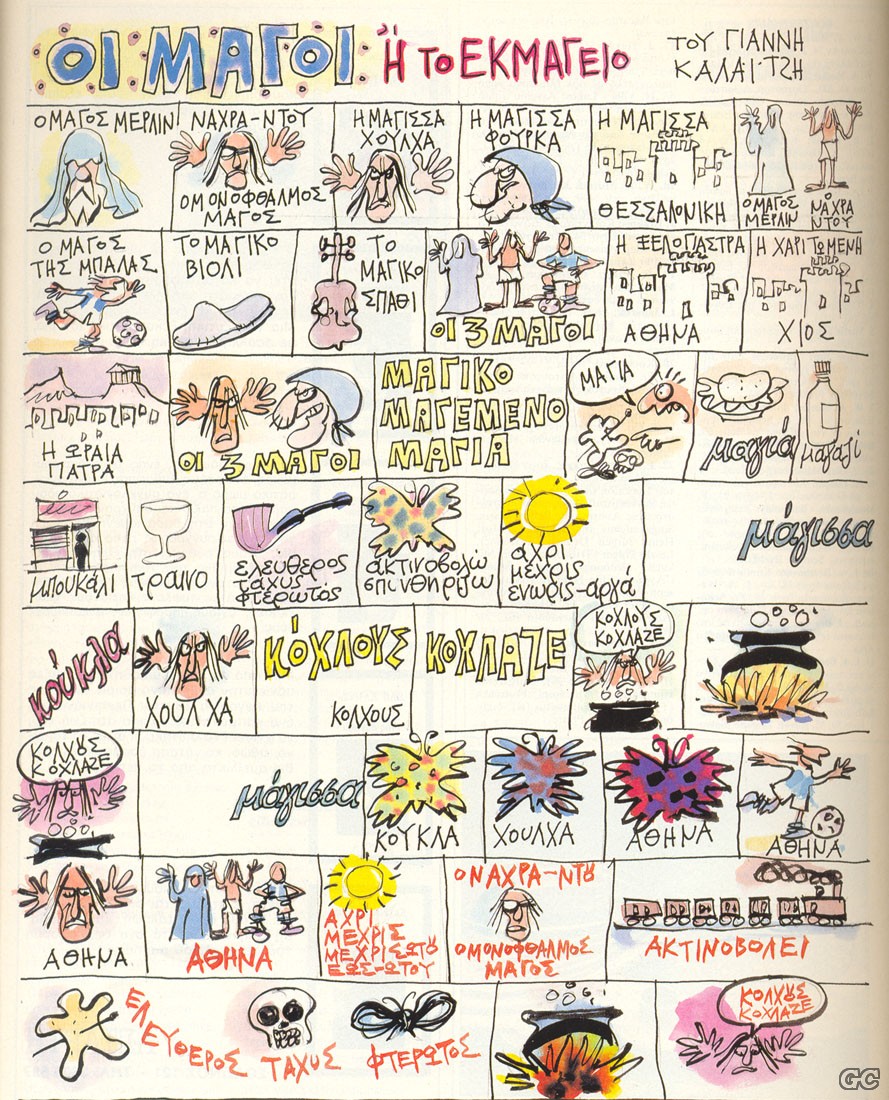 ΟΙ ΜΑΓΟΙ Ή ΤΟ ΕΚΜΑΓΕΙΟ
ΤΟΥ ΓΙΑΝΝΗ
ΚΑΛΑΪΤΖΗ
Ο ΜΑΓΟΣ ΜΕΡΛΙΝ
ΝΑΧΡΑ-ΝΤΟΥ
Ο ΜΟΝΟΦΘΑΛΜΟΣ
ΜΑΓΟΣ
Η ΜΑΓΙΣΣΑ
ΧΟΥΛΧΑ
Η ΜΑΓΙΣΣΑ
ΦΟΥΡΚΑ
Η ΜΑΓΙΣΣΑ
ΘΕΣΣΑΛΟΝΙΚΗ
Ο ΜΑΓΟΣ
ΜΕΡΛΙΝ
Ο
ΝΑΧΡΑ
ΝΤΟΥ
Ο ΜΑΓΟΣ
ΤΗΣ ΜΠΑΛΑΣ
ΤΟ ΜΑΓΙΚΟ
ΒΙΟΛΙ
ΤΟ
ΜΑΓΙΚΟ
ΣΠΑΘΙ
ΟΙ 3 ΜΑΓΟΙ
Η ΞΕΛΟΓΙΑΣΤΡΑ
ΑΘΗΝΑ
Η ΧΑΡΙΤΩΜΕΝΗ
ΧΙΟΣ
Η ΩΡΑΙΑ
ΠΑΤΡΑ
ΟΙ 3 ΜΑΓΟΙ
ΜΑΓΙΚΟ
ΜΑΓΕΜΕΝΟ
ΜΑΓΙΑ
ΜΑΓΙΑ
μαγιά
μαγαζί
μπουκάλι
τραινο
ελεύθερος
ταχυς
φτερωτός
ακτινοβολώ
σπινθηρίζω
άχρι
μέχρις
ενωρίς-αργά
μάγισσα
κούκλα
ΧΟΥΛΧΑ
ΚΌΧΛΟΥΣ
ΚΟΛΧΟΥΣ
ΚΟΧΛΑΖΕ
ΚΟΧΛΟΥΣ
ΚΟΧΛΑΖΕ
ΚΟΛΧΟΥΣ
ΚΟΧΛΑΖΕ
μάγισσα
ΚΟΥΚΛΑ
ΧΟΥΛΧΑ
ΑΘΗΝΑ
ΑΘΗΝΑ
ΑΘΗΝΑ
ΑΘΗΝΑ
ΑΧΡΙ
ΜΕΧΡΙΣ
ΜΕΧΡΙΣ ΩΤΟΥ
ΕΩΣ-ΩΤΟΥ
Ο ΝΑΧΡΑ-ΝΤΟΥ
Ο ΜΟΝΟΦΘΑΛΜΟΣ
ΜΑΓΟΣ
ΑΚΤΙΝΟΒΟΛΕΙ
ΕΛΕΥΘΕΡΟΣ ΤΑΧΥΣ ΦΤΕΡΩΤΟΣ
ΚΟΛΧΟΥΣ
ΚΟΧΛΑΖΕ
GC